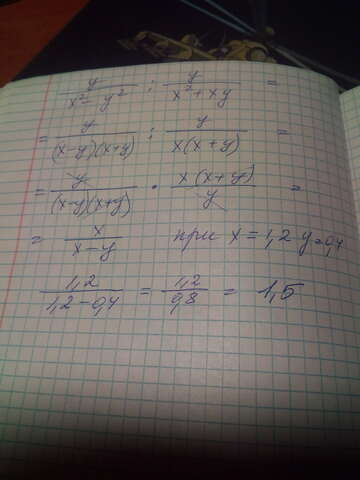 y/(x² - y²) : y/(x² + xy) =
= y/((x-y)(x+y)) : y/(x(x+y)) =
= y/((x-y)(x+y)) · x(x+y)/y =
= x/(x-y) при x = 1,2 y=0,4
1,2/(1,2-0,4) = 1,2/0,8 = 1,5